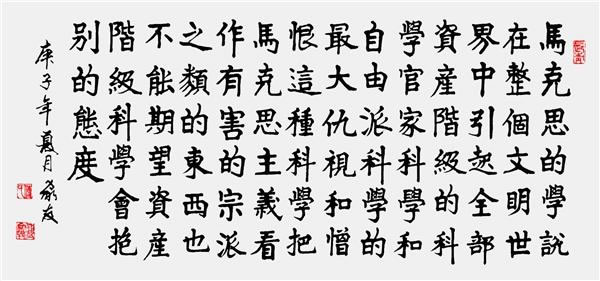 馬克思的學説
在整個文明世
界中引起全部
資産階級的科
學官家科學和
自由派科學的
最大仇視和憎
恨這種科學把
馬克思主義看
作有害的宗派
之類的東西也
不能期望資産
階級科學會抱
别的態度
庚子年夏月